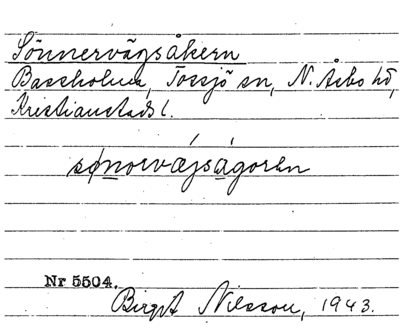 Sönnervägsåkern
Bassholma, Tossjö sn, N. Åsbo hd,
Kristianstads l.
sønorvæjsågorən
Nr 5504.
Birgit Nilsson, 1943.